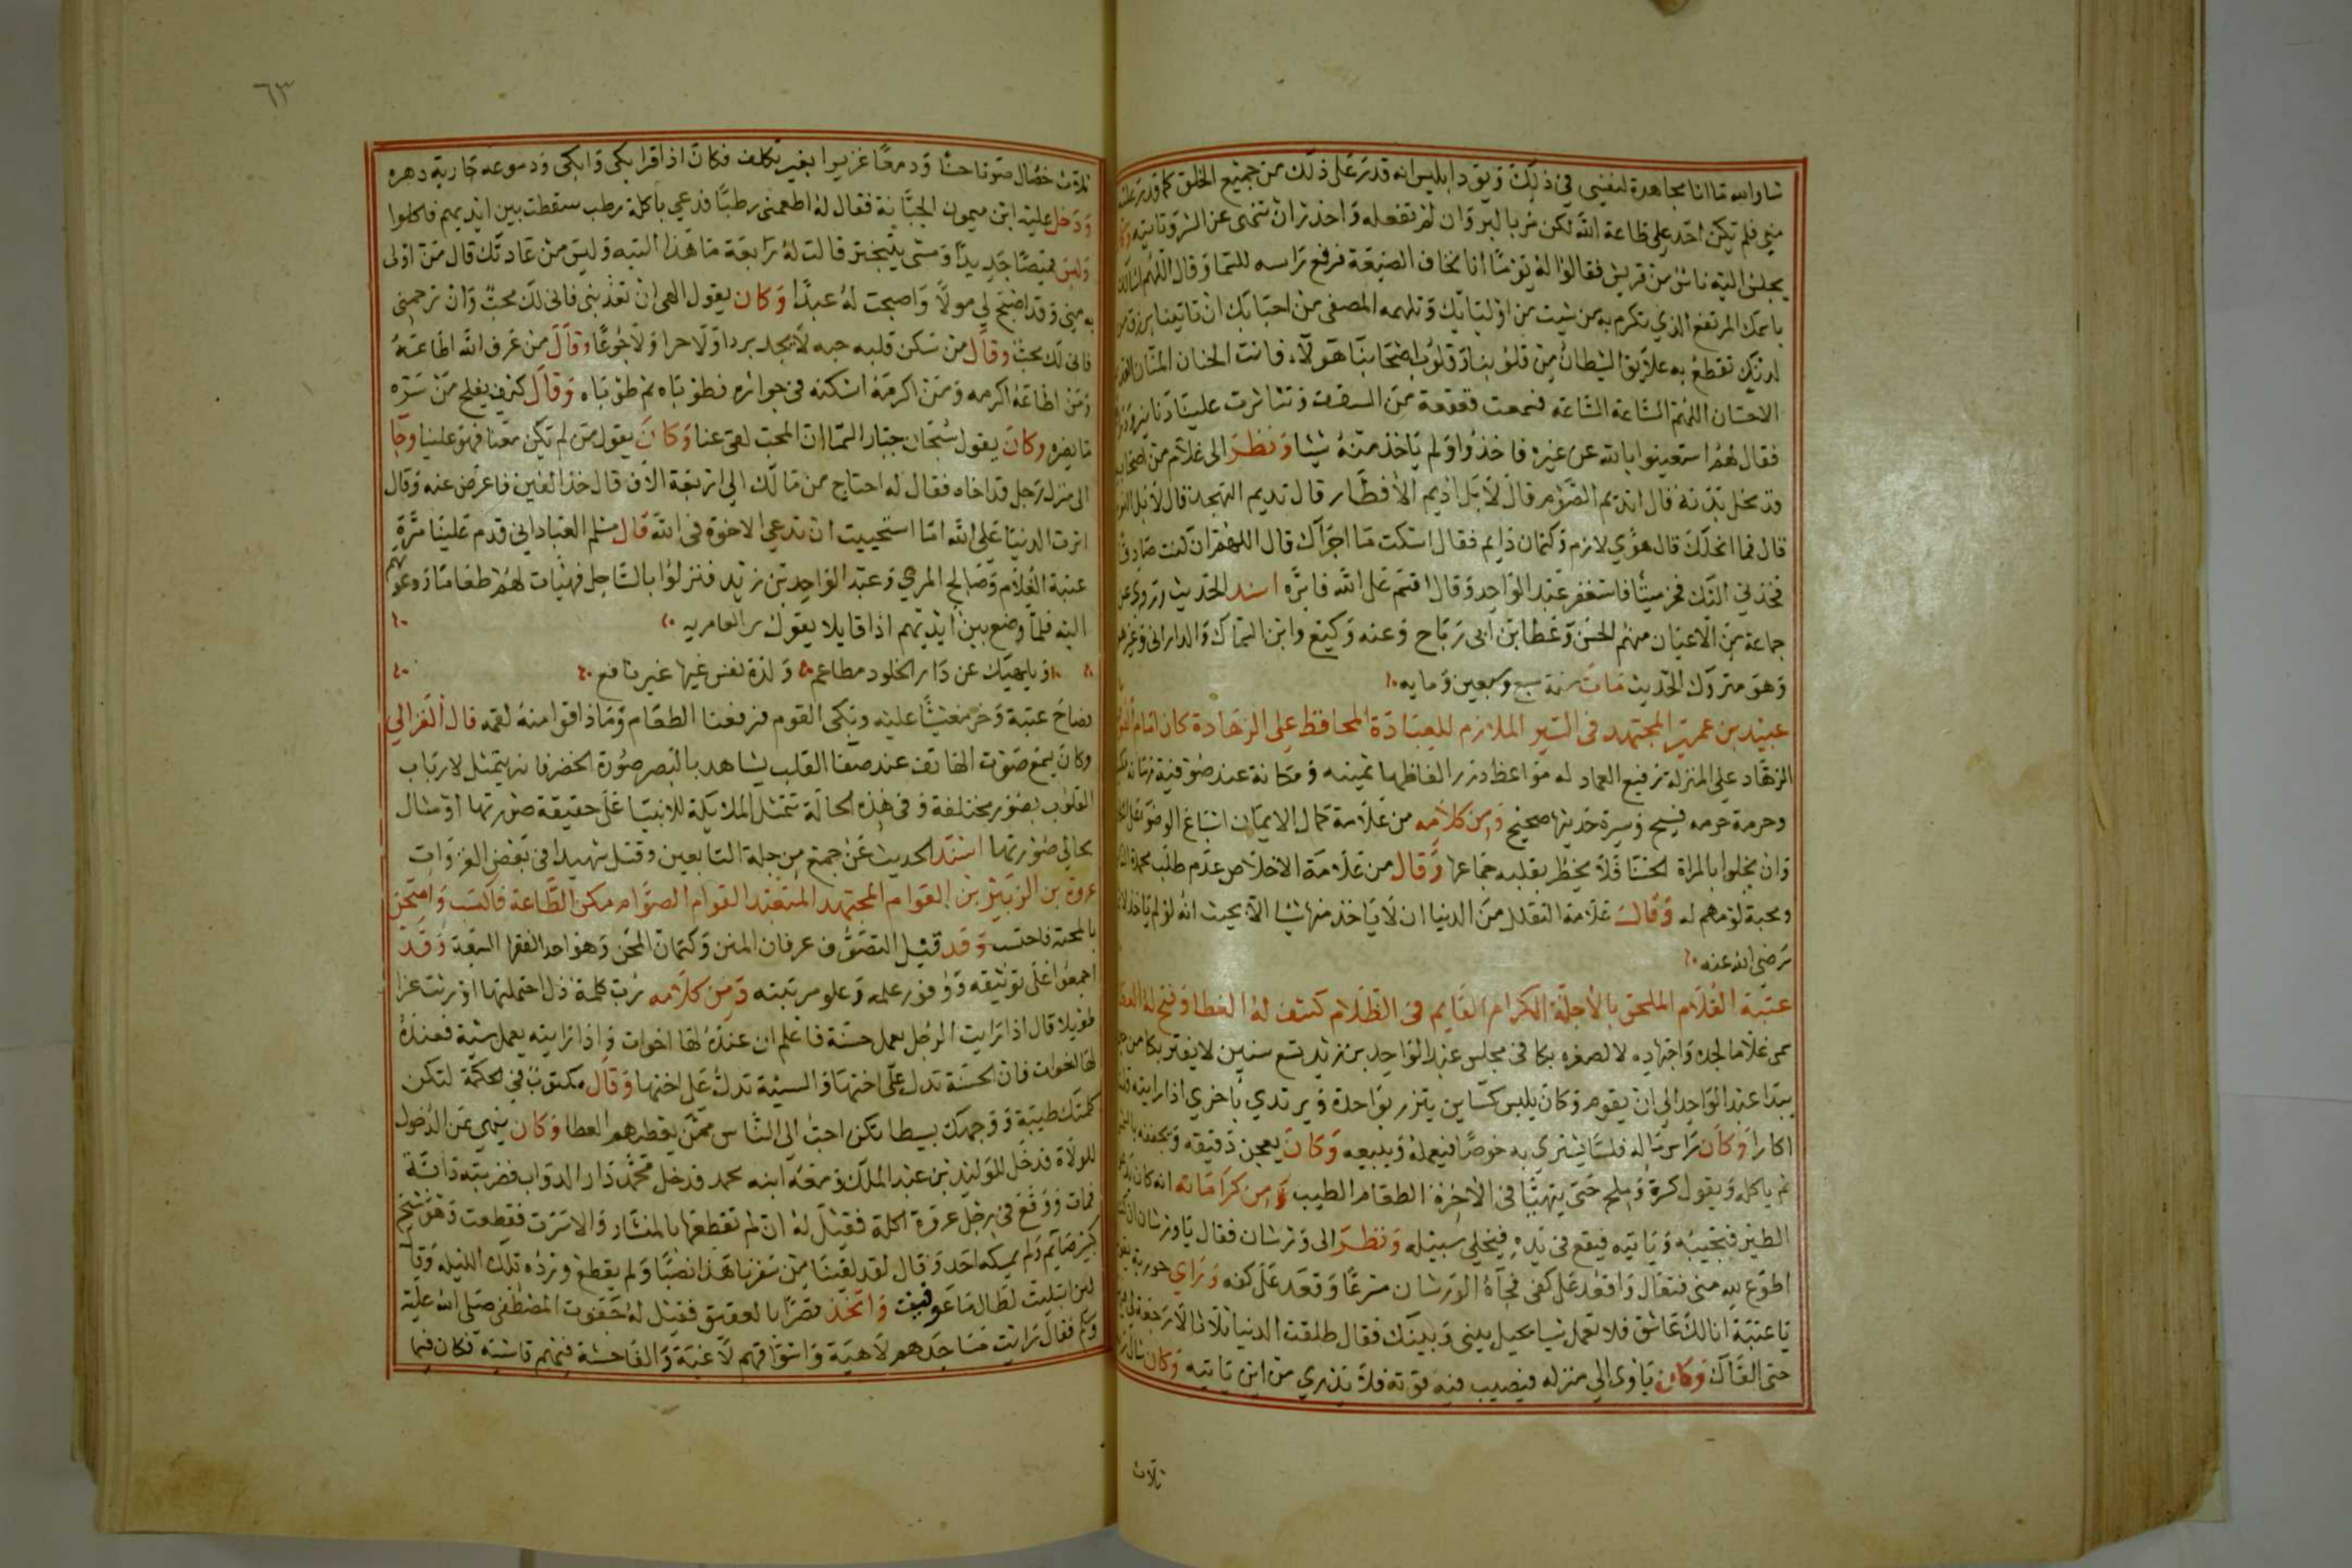 شا والله ما انا بمجاهدة لنفسي في ذلك ويود ابليس انه قدر على ذلك من جميع الخلق كما قدر عليه
مني فلم يكن احد على طاعة الله لكن مر بالبر وان لم تفعله واحذر ان تنهى عن الشر وتاتيه
يجلس اليه ناس من قريش فقالوا له يوما انا نخاف الضيعة فرفع راسه للسما وقال اللهم اسالك
باسمك المرتفع الذي تكرم به من شيت من اوليايك وتلهمه المصفى من احبابك ان تاتينا برزق من
لدنك تقطع به علايق الشيطان من قلوبنا وقلوب اصحابنا هولاء فانت الحنان المنان القديم
الاحسان اللهم الساعة الساعة فسمعت قعقعة من السقف وتناثرت علينا دنانير
فقال لهم استعينوا بالله عن غيره فاخذوا ولم ياخذ منه شيئا ونظر الى غلام من اصحابه
قد نحل بدنه فقال اتديم الصوم قال لا بل اديم الافطار قال تديم التهجد قال لا بل النوم
قال فما انحلك قال هوي لازم وكتمان دايم فقال اسكت ما اجراك قال اللهم ان كنت صادقا
فخذني اليك فخر ميتا فاستغفر عبد الواحد وقال اقسم على الله فابره اسند الحديث وروى عن
جماعة من الاعيان منهم الحسن وعطا بن ابي رباح وعنه وكيع وابن السماك والداراني وغيرهم
وهو متروك الحديث مات سنة سبع وسبعين وماية
عبيد بن عمير المجتهد في السير الملازم للعبادة المحافظ على الزهادة كان امام
الزهاد علي المنزلة رفيع العماد له مواعظ درر الفاظها ثمينه ومكانة عند صوفية زمانه
وحرمة حرمه فسيح وسيرة حديثها صحيح ومن كلامه من علامة كمال الايمان اسباغ الوضو
وان يخلوا بالمراة الحسنا فلا يخطر بقلبه جماعها وقال من علامة الاخلاص عدم طلب محمدة الناس
ومحبة لومهم له وقال علامة التقلل من الدنيا ان لا ياخذ منها شيا الا بحيث انه لو لم ياخذ
رضي الله عنه
عتبة الغلام الملحق بالاجلة الكرام القايم في الظلام كشف له الغطا وفتح له العطا
سمى غلاما لجده واجتهاده لا لصغره بكا في مجلس عبد الواحد بن زيد تسع سنين لا يفتر بكا من حين
يبدا عبد الواحد الى ان يقوم وكان يلبس كساين يتزر بواحدة ويرتدي باخرى اذا رايته قلت
اكارا وكان راس ماله فلسا يشتري به خوصا فيعمله ويبيعه وكان يعجن دقيقه ويجففه بالشمس
ثم ياكله ويقول كسرة وملح حتى يتهيا في الاخرة الطعام الطيب ومن كراماته انه كان يدعو
الطير فتجيبه وياتيه فيقع في يده فيخلي سبيله ونظر الى ورشان فقال يا ورشان ان كنت
اطوع لله مني فتعال واقعد على كفي فجاة الورشان مسرعا وقعد على كفه وراي حورية
يا عتبة انا لك عاشق فلا تعمل شيا يحيل بيني وبينك فقال طلقت الدنيا ثلاثا لا رجعة
حتى القاك وكان ياوى الى منزله فيصيب فيه قوته فلا يدري من اين ياتيه وكان سال الله
ثلاث
٦٣
ثلاث خصال صوتا حسنا ودمعا غزيرا بغير تكلف فكان اذا قرا بكى وابكى ودموعه جارية دهره
ودخل عليه ابن ميمون الجبانة فقال له اطعمني رطبا فدعي باكلة رطب سقطت بين ايديهم فاكلوا
ولبس قميصا جديدا ومشى يتبختر قالت له رابعة ما هذا التيه وليس من عادتك قال من اولى
به مني وقد اصبح لي مولا واصبحت له عبدا وكان يقول الهي ان تعذبني فاني لك محب وان ترحمني
فاني لك محب وقال من سكن قلبه حبه لا يجد بردا ولا حرا ولا جوعا وقال من عرف الله اطاعه
ومن اطاعه اكرمه ومن اكرمه اسكنه في جواره فطوباه ثم طوباه وقال كيف يفلح من سره
ما يضره وكان يقول سبحان جبار السما ان المحب لفي عنا وكان يقول من لم يكن معنا فهو علينا وجا
الى منزل رجل قد اخاه فقال له احتاج من مالك الى اربعة الاف قال خذ الفين فاعرض عنه وقال
اثرت الدنيا على الله اما استحييت ان تدعي الاخوة في الله قال مسلم العباداني قدم علينا مرة
عتبة الغلام وصالح المري وعبد الواحد بن زيد فنزلوا بالساحل فهيات لهم طعاما ودعوتهم
اليه فلما وضع بين ايديهم اذا قايلا يقول
ويلهيك عن دار الخلود مطاعم ولذة نفس غيها غير نافع
فصاح عتبة وخر مغشيا عليه وبكى القوم فرفعنا الطعام وما ذاقوا منه لقمه قال الغزالي
وكان يسمع صوت الهاتف عند صفا القلب يشاهد بالبصر صورة الخضر فانه يتمثل لارباب
القلوب بصور مختلفة وفي هذه الحالة تتمثل الملايكة للانبيا على حقيقة صورتها او مثال
يحاكي صورتها اسند الحديث عن جمع من جلة التابعين وقتل شهيدا في بعض الغزوات
عروة بن الزبير بن العوام المجتهد المتعبد القوام الصوام مكن الطاعة فاكتسب وامتحن
بالمحنة فاحتسب وقد قيل التصوف عرفان المنن وكتمان المحن وهو احد الفقها السبعة وقد
اجمعوا على توثيقه ووفور علمه وعلو مرتبته ومن كلامه رب كلمة ذل احتملتها اورثت عزا
طويلا قال اذا رايت الرجل يعمل حسنة فاعلم ان عنده لها اخوات واذا رايته يعمل سيئة فعنده
لها اخوات فان الحسنة تدل على اختها والسيئة تدل على اختها وقال مكتوب في الحكمة لتكن
كلمتك طيبة ووجهك بسيطا تكن احب الى الناس ممن يعطيهم العطا وكان ينهي عن الدخول
للولاة فدخل للوليد بن عبد الملك ومعه ابنه محمد فدخل محمد دار الدواب فضربته دابة
فمات ووقع في رجل عروة اكلة فقيل له ان لم تقطعها بالمنشار والا سرت فقطعت وهو شيخ
كبير صايم ولم يمسكه احد وقال لقد لقينا من سفرنا هذا نصبا ولم يقطع ورده تلك الليلة وقال
لين ابتليت لطالما عوفيت واتخذ قصرا بالعقيق فقيل له جفوت المصطفى صلى الله عليه
وسلم فقال رايت مساجدهم لاهية واسواقهم لاغية والفاحشة فيهم فاشية فكان فيما